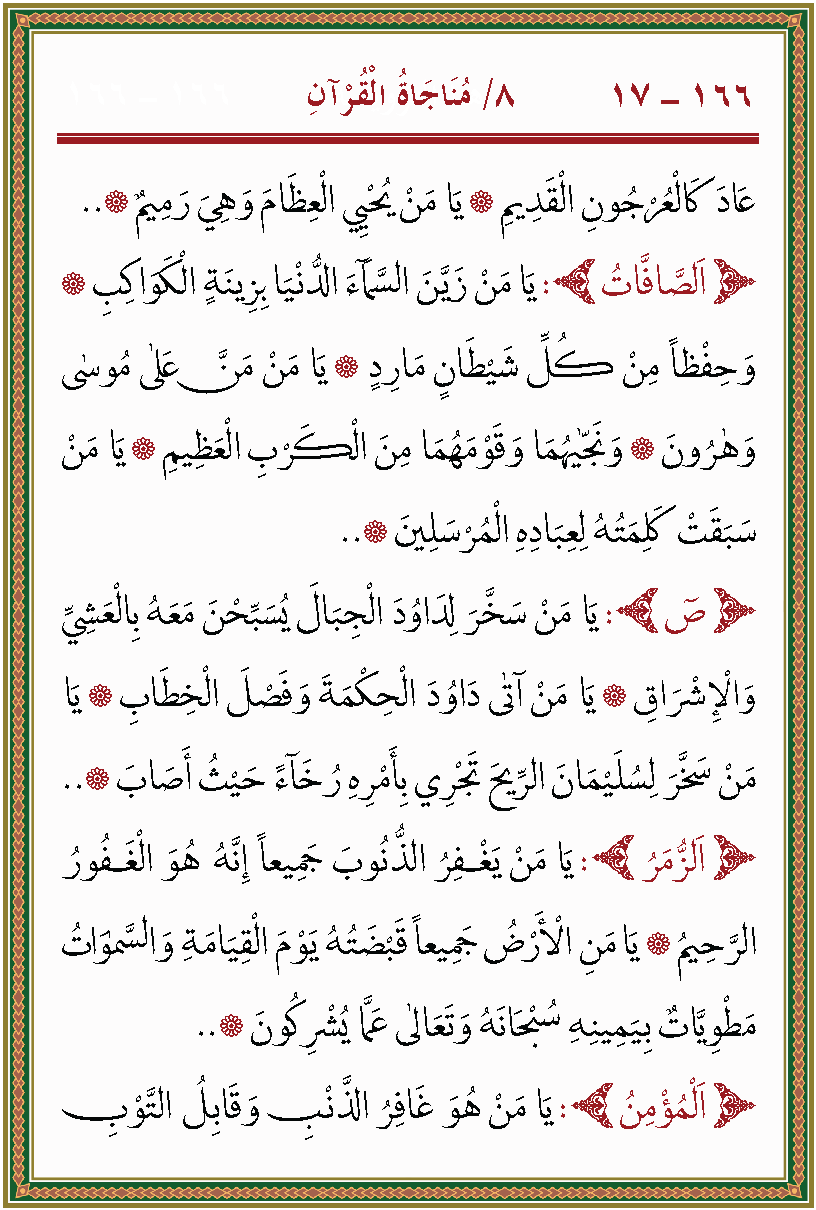 ١٦٦ - ١٧ ٨/ مُنَاجَاةُ الْقُرْآنِ
عَادَ كَالْعُرْجُونِ الْقَدِيمِ ۞ يَا مَنْ يُحْيِي الْعِظَامَ وَهِيَ رَمِيمٌ ۞..
﴿ اَلصَّافَّاتُ ﴾: يَا مَنْ زَيَّنَ السَّمَآءَ الدُّنْيَا بِزِينَةٍ الْكَوَاكِبِ ۞
وَحِفْظاً مِنْ كُلِّ شَيْطَانٍ مَارِدٍ ۞ يَا مَنْ مَنَّ عَلٰى مُوسٰى
وَهٰرُونَ ۞ وَنَجَّيْنٰهُمَا وَقَوْمَهُمَا مِنَ الْكَرْبِ الْعَظِيمِ ۞ يَا مَنْ
سَبَقَتْ كَلِمَتُهُ لِعِبَادِهِ الْمُرْسَلِينَ ۞..
﴿ صٓ ﴾: يَا مَنْ سَخَّرَ لِدَاوُدَ الْجِبَالَ يُسَبِّحْنَ مَعَهُ بِالْعَشِيِّ
وَالْإِشْرَاقِ ۞ يَا مَنْ آتٰى دَاوُدَ الْحِكْمَةَ وَفَصْلَ الْخِطَابِ ۞ يَا
مَنْ سَخَّرَ لِسُلَيْمَانَ الرِّيحَ تَجْرِي بِأَمْرِهِ رُخَآءً حَيْثُ أَصَابَ ۞..
﴿ اَلزُّمَرُ ﴾: يَا مَنْ يَغْفِرُ الذُّنُوبَ جَمِيعاً إِنَّهُ هُوَ الْغَفُورُ
الرَّحِيمُ ۞ يَا مَنِ الْأَرْضُ جَمِيعاً قَبْضَتُهُ يَوْمَ الْقِيَامَةِ وَالسَّمٰوَاتُ
مَطْوِيَّاتٌ بِيَمِينِهِ سُبْحَانَهُ وَتَعَالٰى عَمَّا يُشْرِكُونَ ۞..
﴿ اَلْمُؤْمِنُ ﴾: يَا مَنْ هُوَ غَافِرُ الذَّنْبِ وَقَابِلُ التَّوْبِ